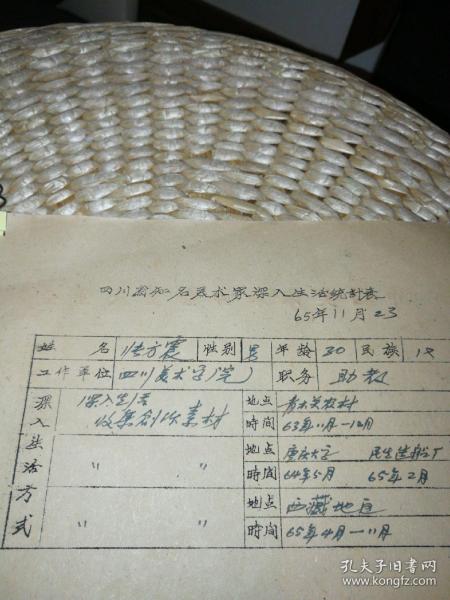 四川省知名美术家深入生活统计表
65年11月23
姓名 张方震 性别 男 年龄 30 民族 汉
工作单位 四川美术学院 职务 助教
深入生活方式
深入生活 收集创作素材 地点 农村
時间 63年11月—12月
〃 〃 地点 重庆大学 民生造船厂
時间 64年5月 65年2月
〃 〃 地点 西藏地区
時间 65年4月—11月
孔夫子旧书网
www.kongfz.com